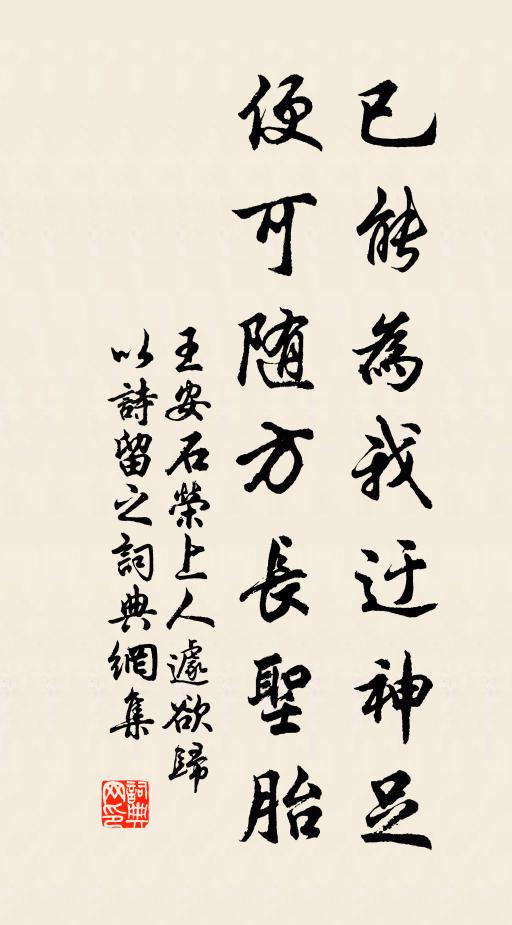 已能為我迂神足
便可随方長聖胎
王安石榮上人遽欲歸
以詩留之詞典網集
詞典网印